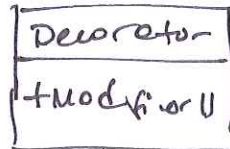 Decorator
+Modifier()